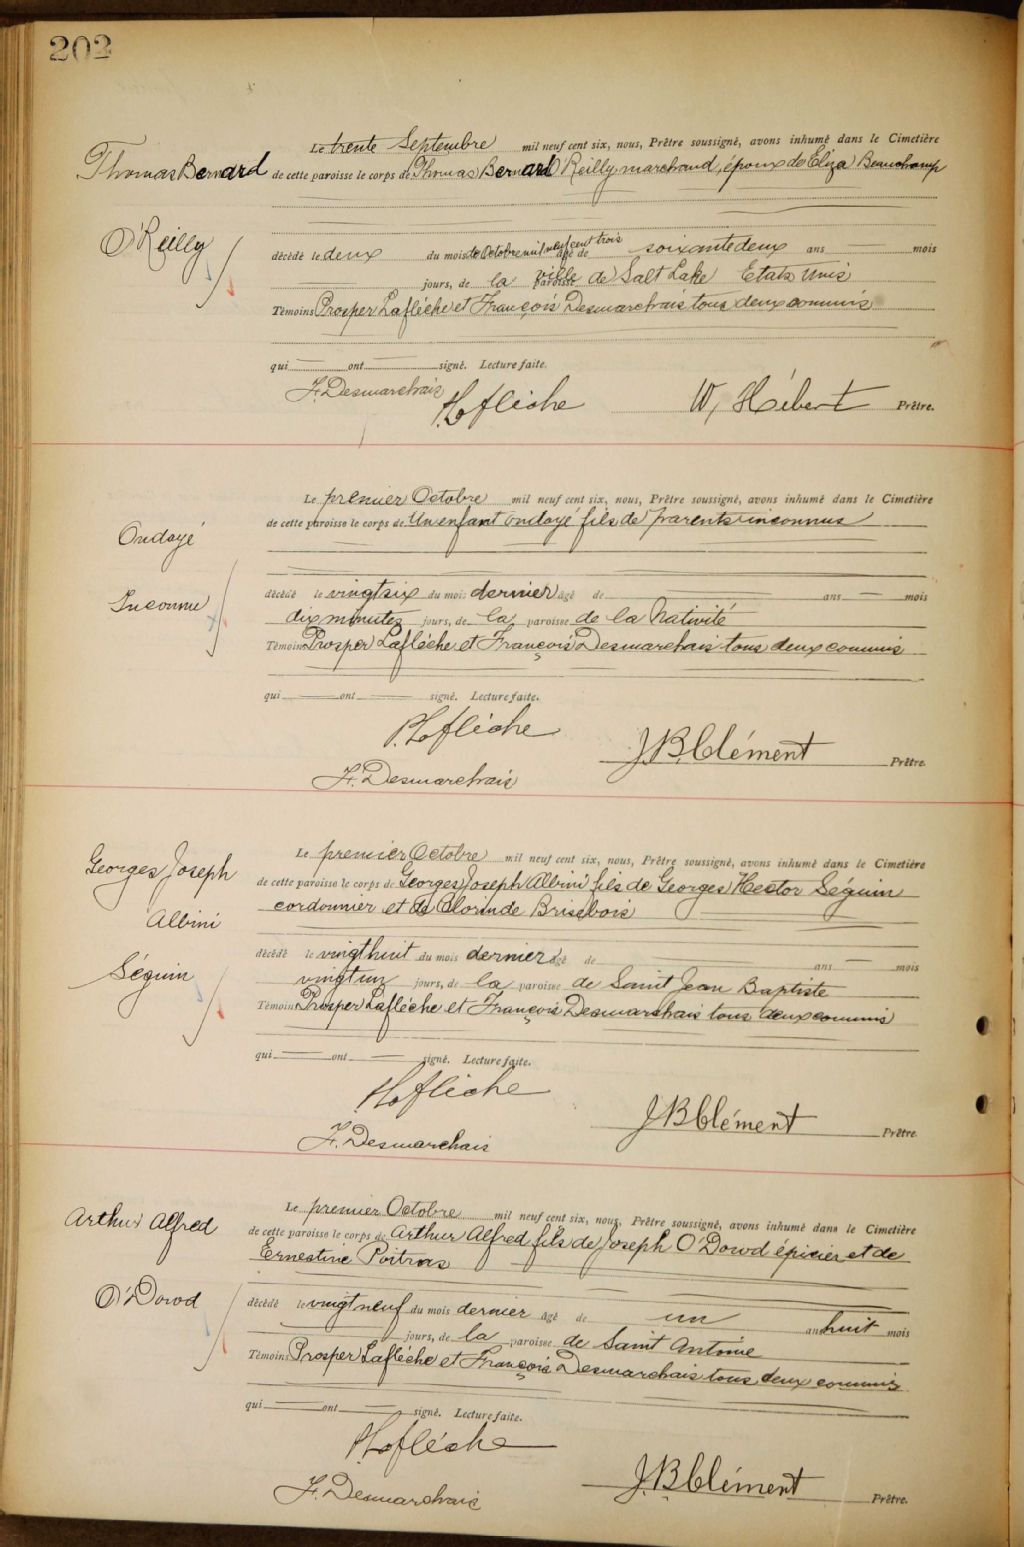 202
Thomas Bernard
O'Reilly
Le trente Septembre mil neuf cent six, nous, Prêtre soussigné, avons inhumé dans le Cimetière
de cette paroisse le corps de Thomas Bernard O'Reilly marchand, époux de Eliza Beauchamp
décédé le deux du mois de Octobre mil neuf cent trois âgé de soixante deux ans mois
jours, de la paroisse ville de Salt Lake Etats Unis
Témoins Prosper Laflèche et François Desmarchais tous deux commis
qui ont signé. Lecture faite.
F. Desmarchais
P. Laflèche W. Hébert Prêtre.
Ondoyé
Inconnu
Le premier Octobre mil neuf cent six, nous, Prêtre soussigné, avons inhumé dans le Cimetière
de cette paroisse le corps de Un enfant ondoyé fils de parents inconnus
décédé le vingt six du mois dernier âgé de ans mois
dix minutes jours, de la paroisse de la Nativité
Témoins Prosper Laflèche et François Desmarchais tous deux commis
qui ont signé. Lecture faite.
P. Laflèche
J. B. Clément Prêtre.
F. Desmarchais
Georges Joseph
Albini
Séguin
Le premier Octobre mil neuf cent six, nous, Prêtre soussigné, avons inhumé dans le Cimetière
de cette paroisse le corps de Georges Joseph Albini fils de Georges Hector Séguin
cordonnier et de Clorinde Brisebois
décédé le vingt huit du mois dernier âgé de ans mois
vingt un jours, de la paroisse de Saint Jean Baptiste
Témoins Prosper Laflèche et François Desmarchais tous deux commis
qui ont signé. Lecture faite.
P. Laflèche
J. B. Clément Prêtre.
F. Desmarchais
Arthur Alfred
O'Dowd
Le premier Octobre mil neuf cent six, nous, Prêtre soussigné, avons inhumé dans le Cimetière
de cette paroisse le corps de Arthur Alfred fils de Joseph O'Dowd épicier et de
Ernestine Poitras
décédé le vingt neuf du mois dernier âgé de un an huit mois
jours, de la paroisse de Saint Antoine
Témoins Prosper Laflèche et François Desmarchais tous deux commis
qui ont signé. Lecture faite.
P. Laflèche
J. B. Clément Prêtre.
F. Desmarchais